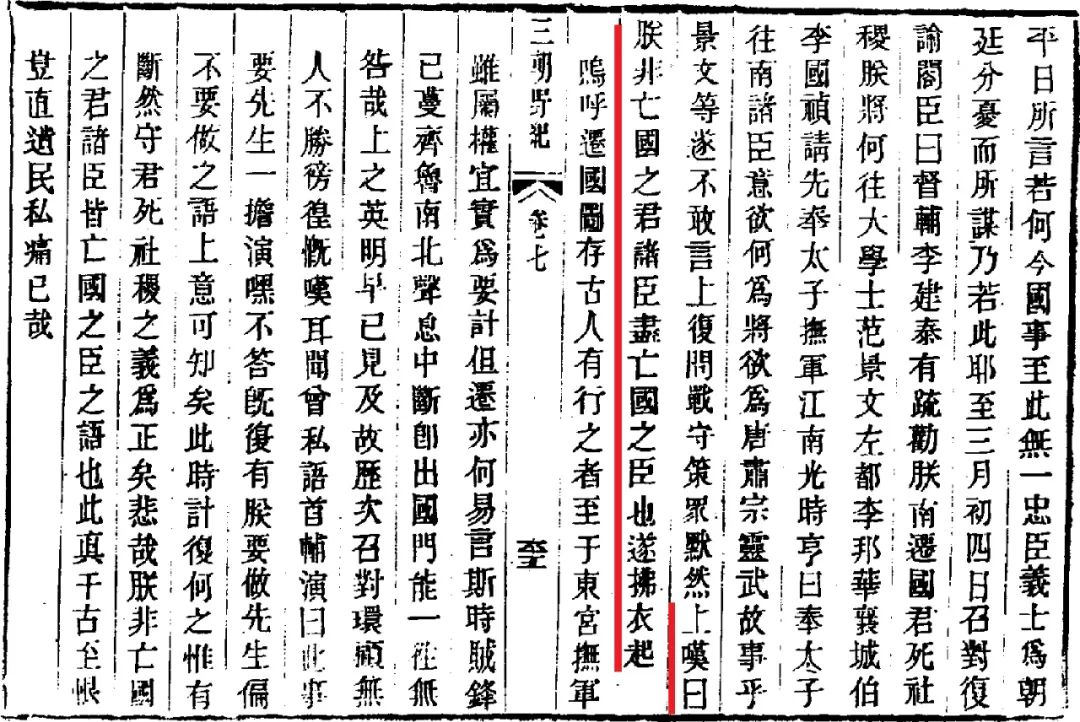 平日所言若何今國事至此無一忠臣義士爲朝
廷分憂而所謀乃若此耶至三月初四日召對復
諭閣臣曰督輔李建泰有疏勸朕南遷國君死社
稷朕將何往大學士范景文左都李邦華襄城伯
李國禎請先奉太子撫軍江南光時亨曰奉太子
往南諸臣意欲何爲將欲爲唐肅宗靈武故事乎
景文等遂不敢言上復問戰守策眾默然上嘆曰
朕非亡國之君諸臣盡亡國之臣也遂拂衣起
嗚呼遷國圖存古人有行之者至于東宮撫軍
三朝野紀 卷七
雖屬權宜實爲要計但遷亦何易言斯時賊鋒
已蔓齊魯南北聲息中斷卽出國門能一往無
咎哉上之英明早已見及故歷次召對環顧無
人不勝徬徨慨嘆耳聞曾私語首輔演曰此事
要先生一擔演嘿不答旣復有朕要做先生偏
不要做之語上意可知矣此時計復何之惟有
斷然守君死社稷之義爲正矣悲哉朕非亡國
之君諸臣皆亡國之臣之語也此真千古至恨
豈直遺民私痛已哉